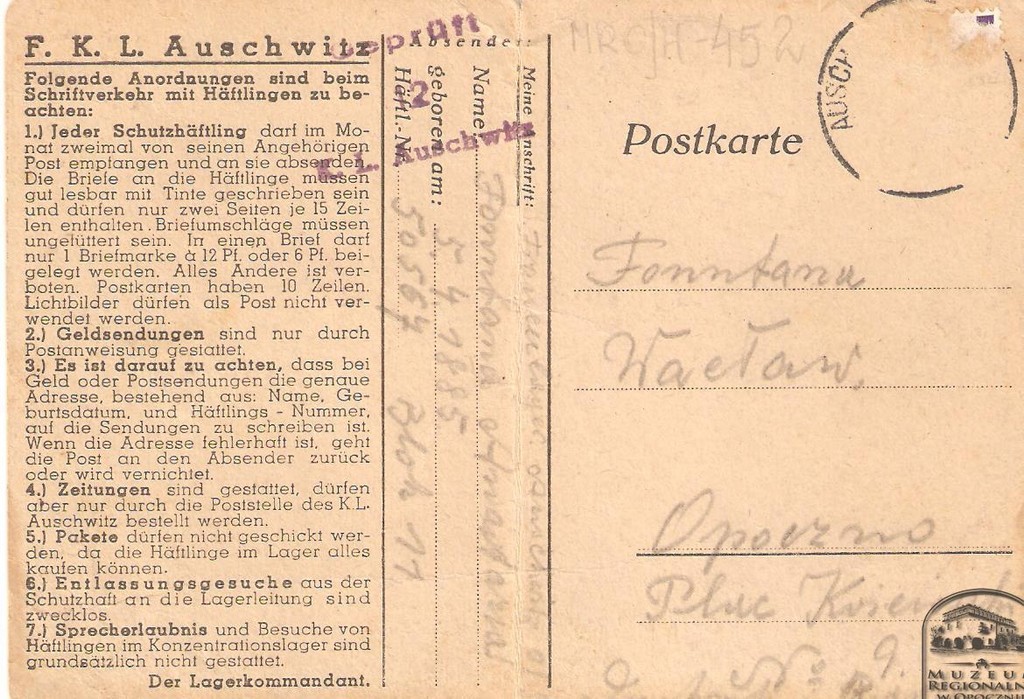 F. K. L. Auschwitz
Folgende Anordnungen sind beim
Schriftverkehr mit Häftlingen zu be-
achten:
1.) Jeder Schutzhäftling darf im Mo-
nat zweimal von seinen Angehörigen
Post empfangen und an sie absenden.
Die Briefe an die Häftlinge müssen
gut lesbar mit Tinte geschrieben sein
und dürfen nur zwei Seiten je 15 Zei-
len enthalten. Briefumschläge müssen
ungefüttert sein. In einen Brief darf
nur 1 Briefmarke à 12 Pf. oder 6 Pf. bei-
gelegt werden. Alles Andere ist ver-
boten. Postkarten haben 10 Zeilen.
Lichtbilder dürfen als Post nicht ver-
wendet werden.
2.) Geldsendungen sind nur durch
Postanweisung gestattet.
3.) Es ist darauf zu achten, dass bei
Geld oder Postsendungen die genaue
Adresse, bestehend aus: Name, Ge-
burtsdatum, und Häftlings - Nummer,
auf die Sendungen zu schreiben ist.
Wenn die Adresse fehlerhaft ist, geht
die Post an den Absender zurück
oder wird vernichtet.
4.) Zeitungen sind gestattet, dürfen
aber nur durch die Poststelle des K.L.
Auschwitz bestellt werden.
5.) Pakete dürfen nicht geschickt wer-
den, da die Häftlinge im Lager alles
kaufen können.
6.) Entlassungsgesuche aus der
Schutzhaft an die Lagerleitung sind
zwecklos.
7.) Sprecherlaubnis und Besuche von
Häftlingen im Konzentrationslager sind
grundsätzlich nicht gestattet.
Der Lagerkommandant.
Geprüft
12
K. L. Auschwitz
Absender:
Meine Anschrift:
Name
geboren am: 5 4 1885
Häftl.-Nr. 50564 Block 11
MRO/H-452
AUSCH
Postkarte
Fonntana
Wacław,
Opoczno
Plac
Nº 9.
MUZEUM
REGIONALNE
W OPOCZNIE